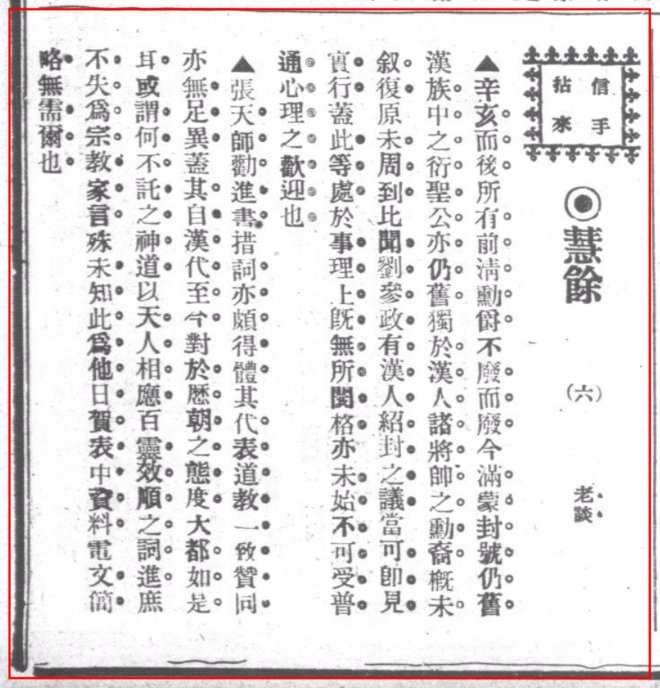 信手
拈來
◉慧餘
(六)
老談
▲辛亥而後所有前淸勳爵不廢而廢今滿蒙封號仍舊
漢族中之衍聖公亦仍舊獨於漢人諸將帥之勳裔槪未
叙復原未周到比聞劉參政有漢人紹封之議當可卽見
實行蓋此等處於事理上旣無所閡格亦未始不可受普
通心理之歡迎也
▲張天師勸進書措詞亦頗得體其代表道教一致贊同
亦無足異蓋其自漢代至今對於歷朝之態度大都如是
耳或謂何不託之神道以天人相應百靈效順之詞進庶
不失爲宗教家言殊未知此爲他日賀表中資料電文簡
略無需爾也